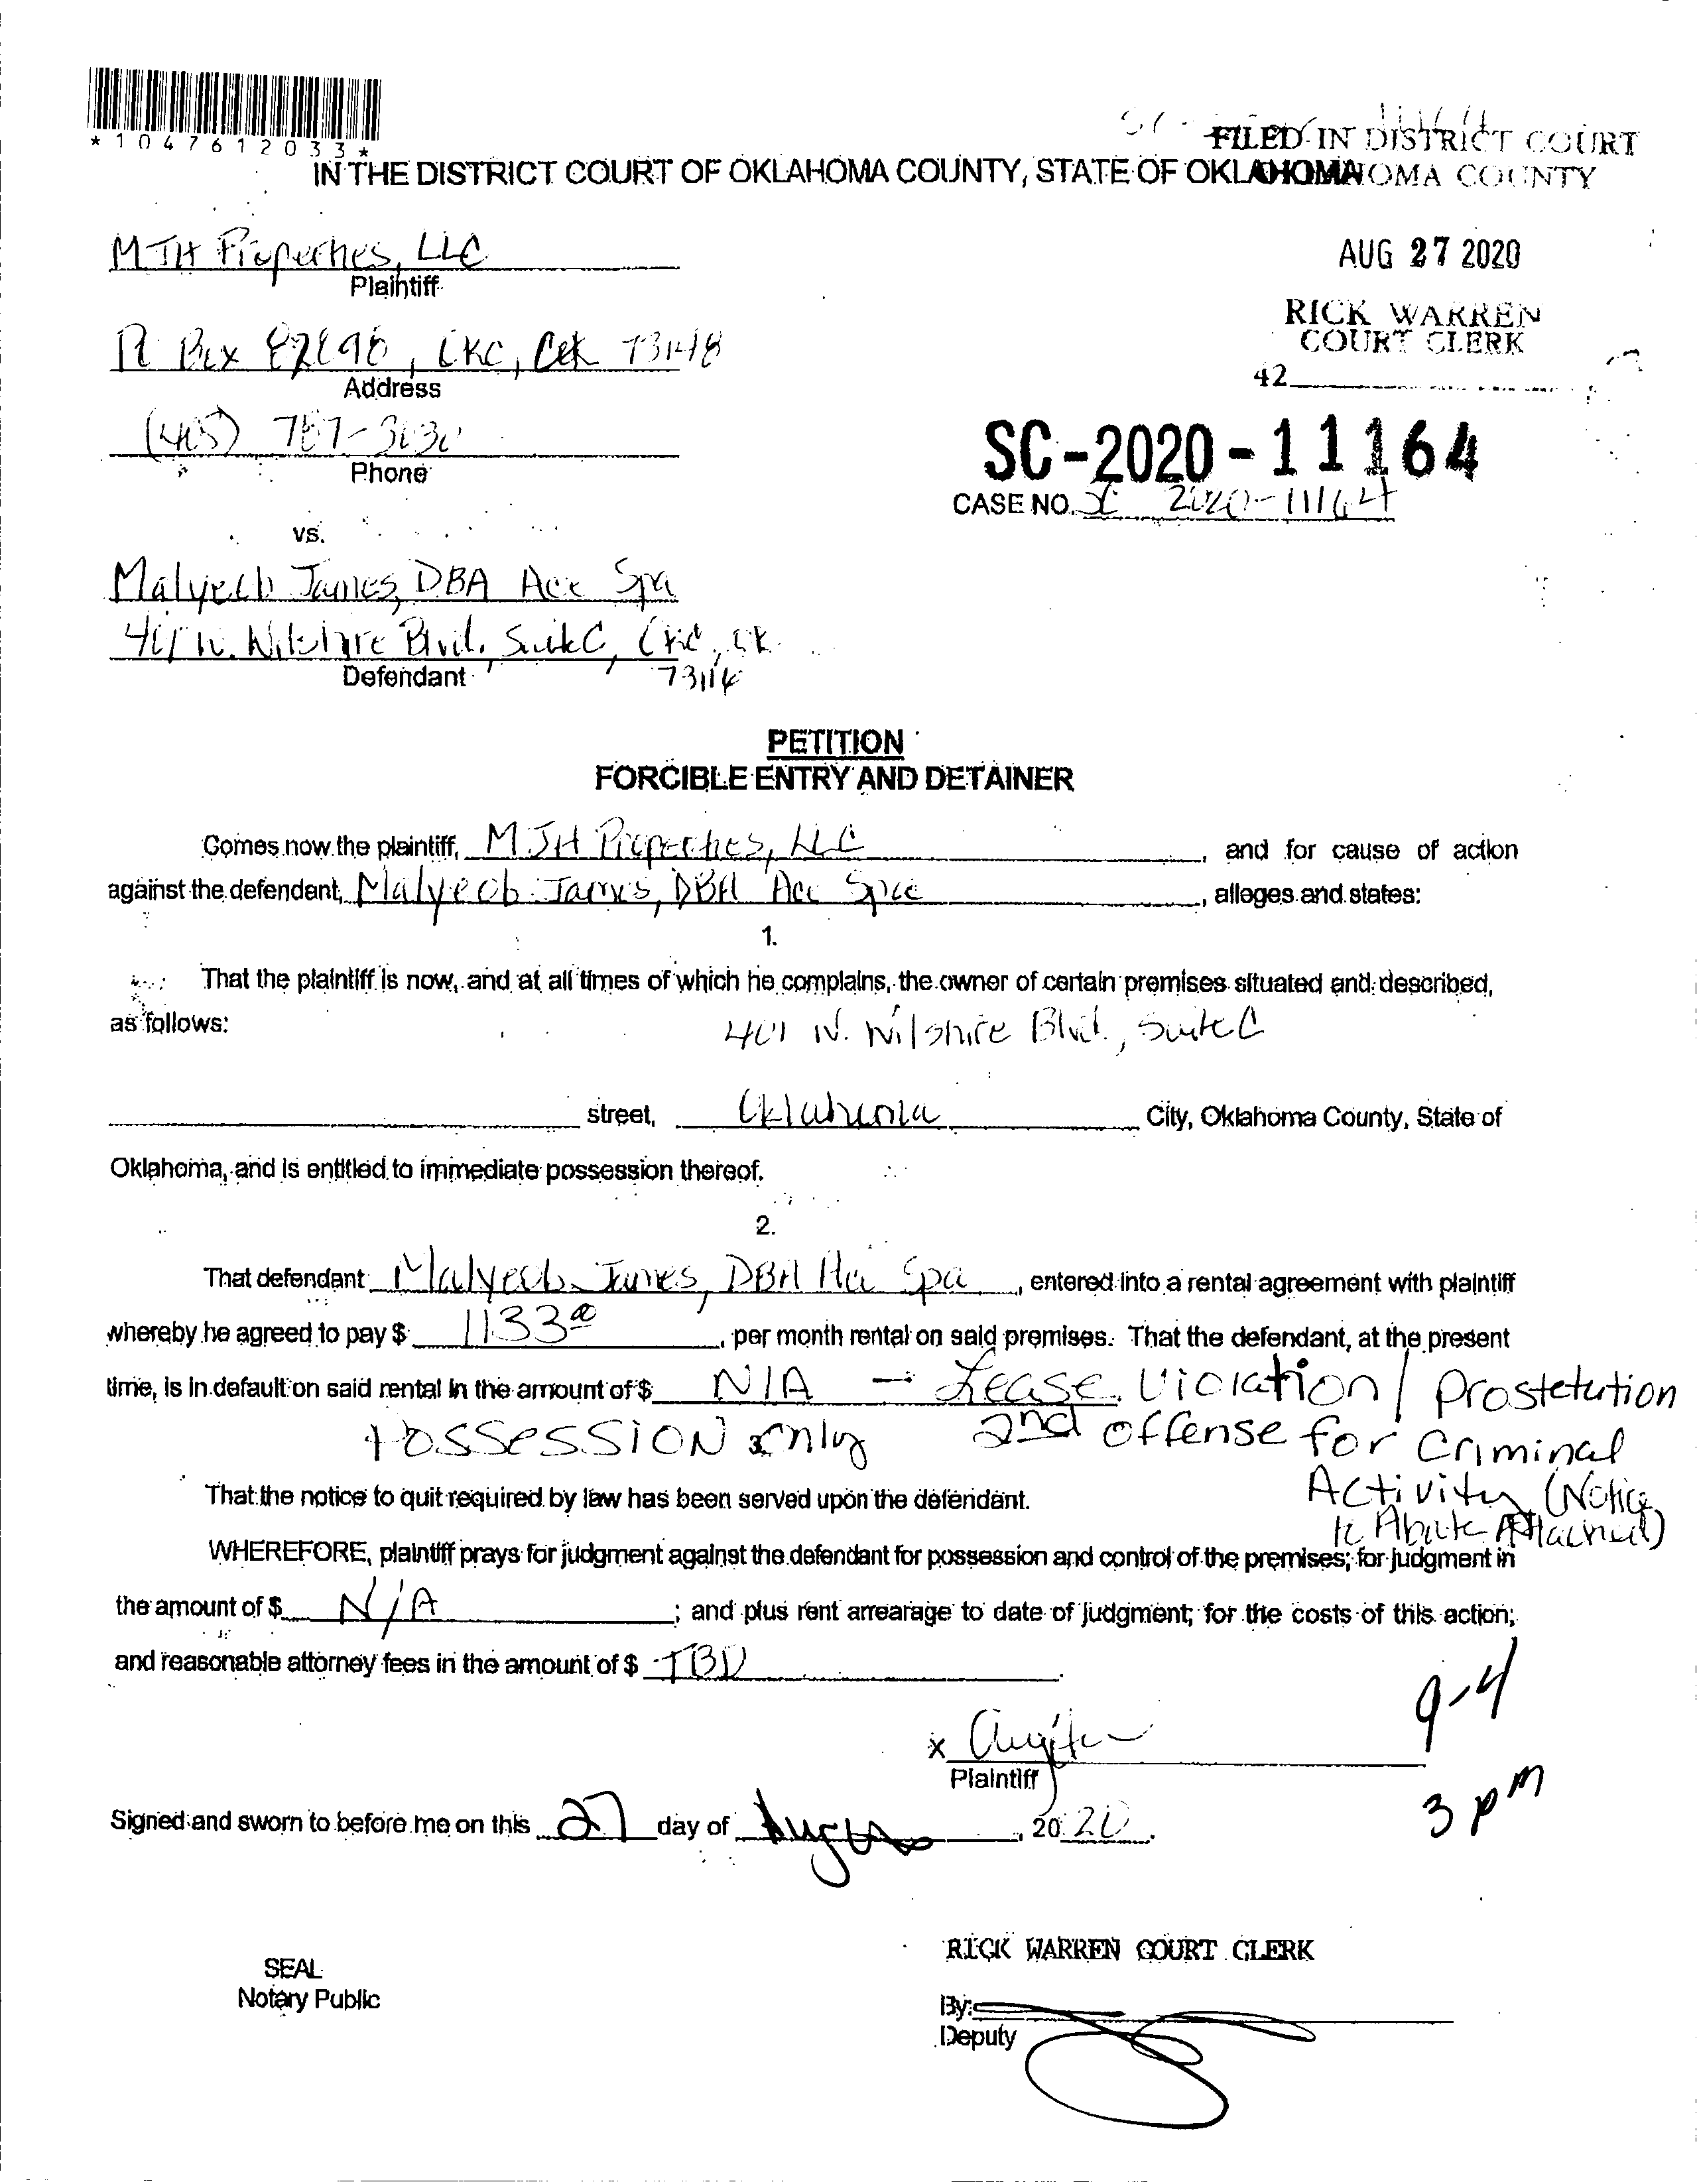 *1047612033*
FILED IN DISTRICT COURT
IN THE DISTRICT COURT OF OKLAHOMA COUNTY, STATE OF OKLAHOMA
OKLAHOMA COUNTY
MJH Properties, LLC
Plaintiff
AUG 27 2020
RICK WARREN
COURT CLERK
42
, OKC, OK 73148
Address
(405)
Phone
SC-2020-11164
CASE NO. SC 2020-11164
vs.
Malyeob James, DBA Ace Spa
401 W. Wilshire Blvd. Suite C, OKC, OK
73116
Defendant
PETITION
FORCIBLE ENTRY AND DETAINER
Comes now the plaintiff, MJH Properties, LLC, and for cause of action
against the defendent, Malyeob James, DBA Ace Spa, alleges and states:
1.
That the plaintiff is now, and at all times of which he complains, the owner of certain premises situated and described,
as follows: 401 W. Wilshire Blvd., Suite C
street, Oklahoma City, Oklahoma County, State of
Oklahoma, and is entitled to immediate possession thereof.
2.
That defendant Malyeob James, DBA Ace Spa, entered into a rental agreement with plaintiff
whereby he agreed to pay $ 1133.00, per month rental on said premises. That the defendant, at the present
time, is in default on said rental in the amount of $ N/A - Lease Violation / Prostetution
Possession only 2nd offense for Criminal
Activity (Notice
to Abate Attached)
That the notice to quit required by law has been served upon the defendant.
WHEREFORE, plaintiff prays for judgment against the defendant for possession and control of the premises; for judgment in
the amount of $ N/A; and plus rent arrearage to date of judgment; for the costs of this action;
and reasonable attorney fees in the amount of $ TBD.
9-4
x
Plaintiff
3 pm
Signed and sworn to before me on this 27 day of August, 2020.
RICK WARREN COURT CLERK
SEAL
Notary Public
By:
Deputy